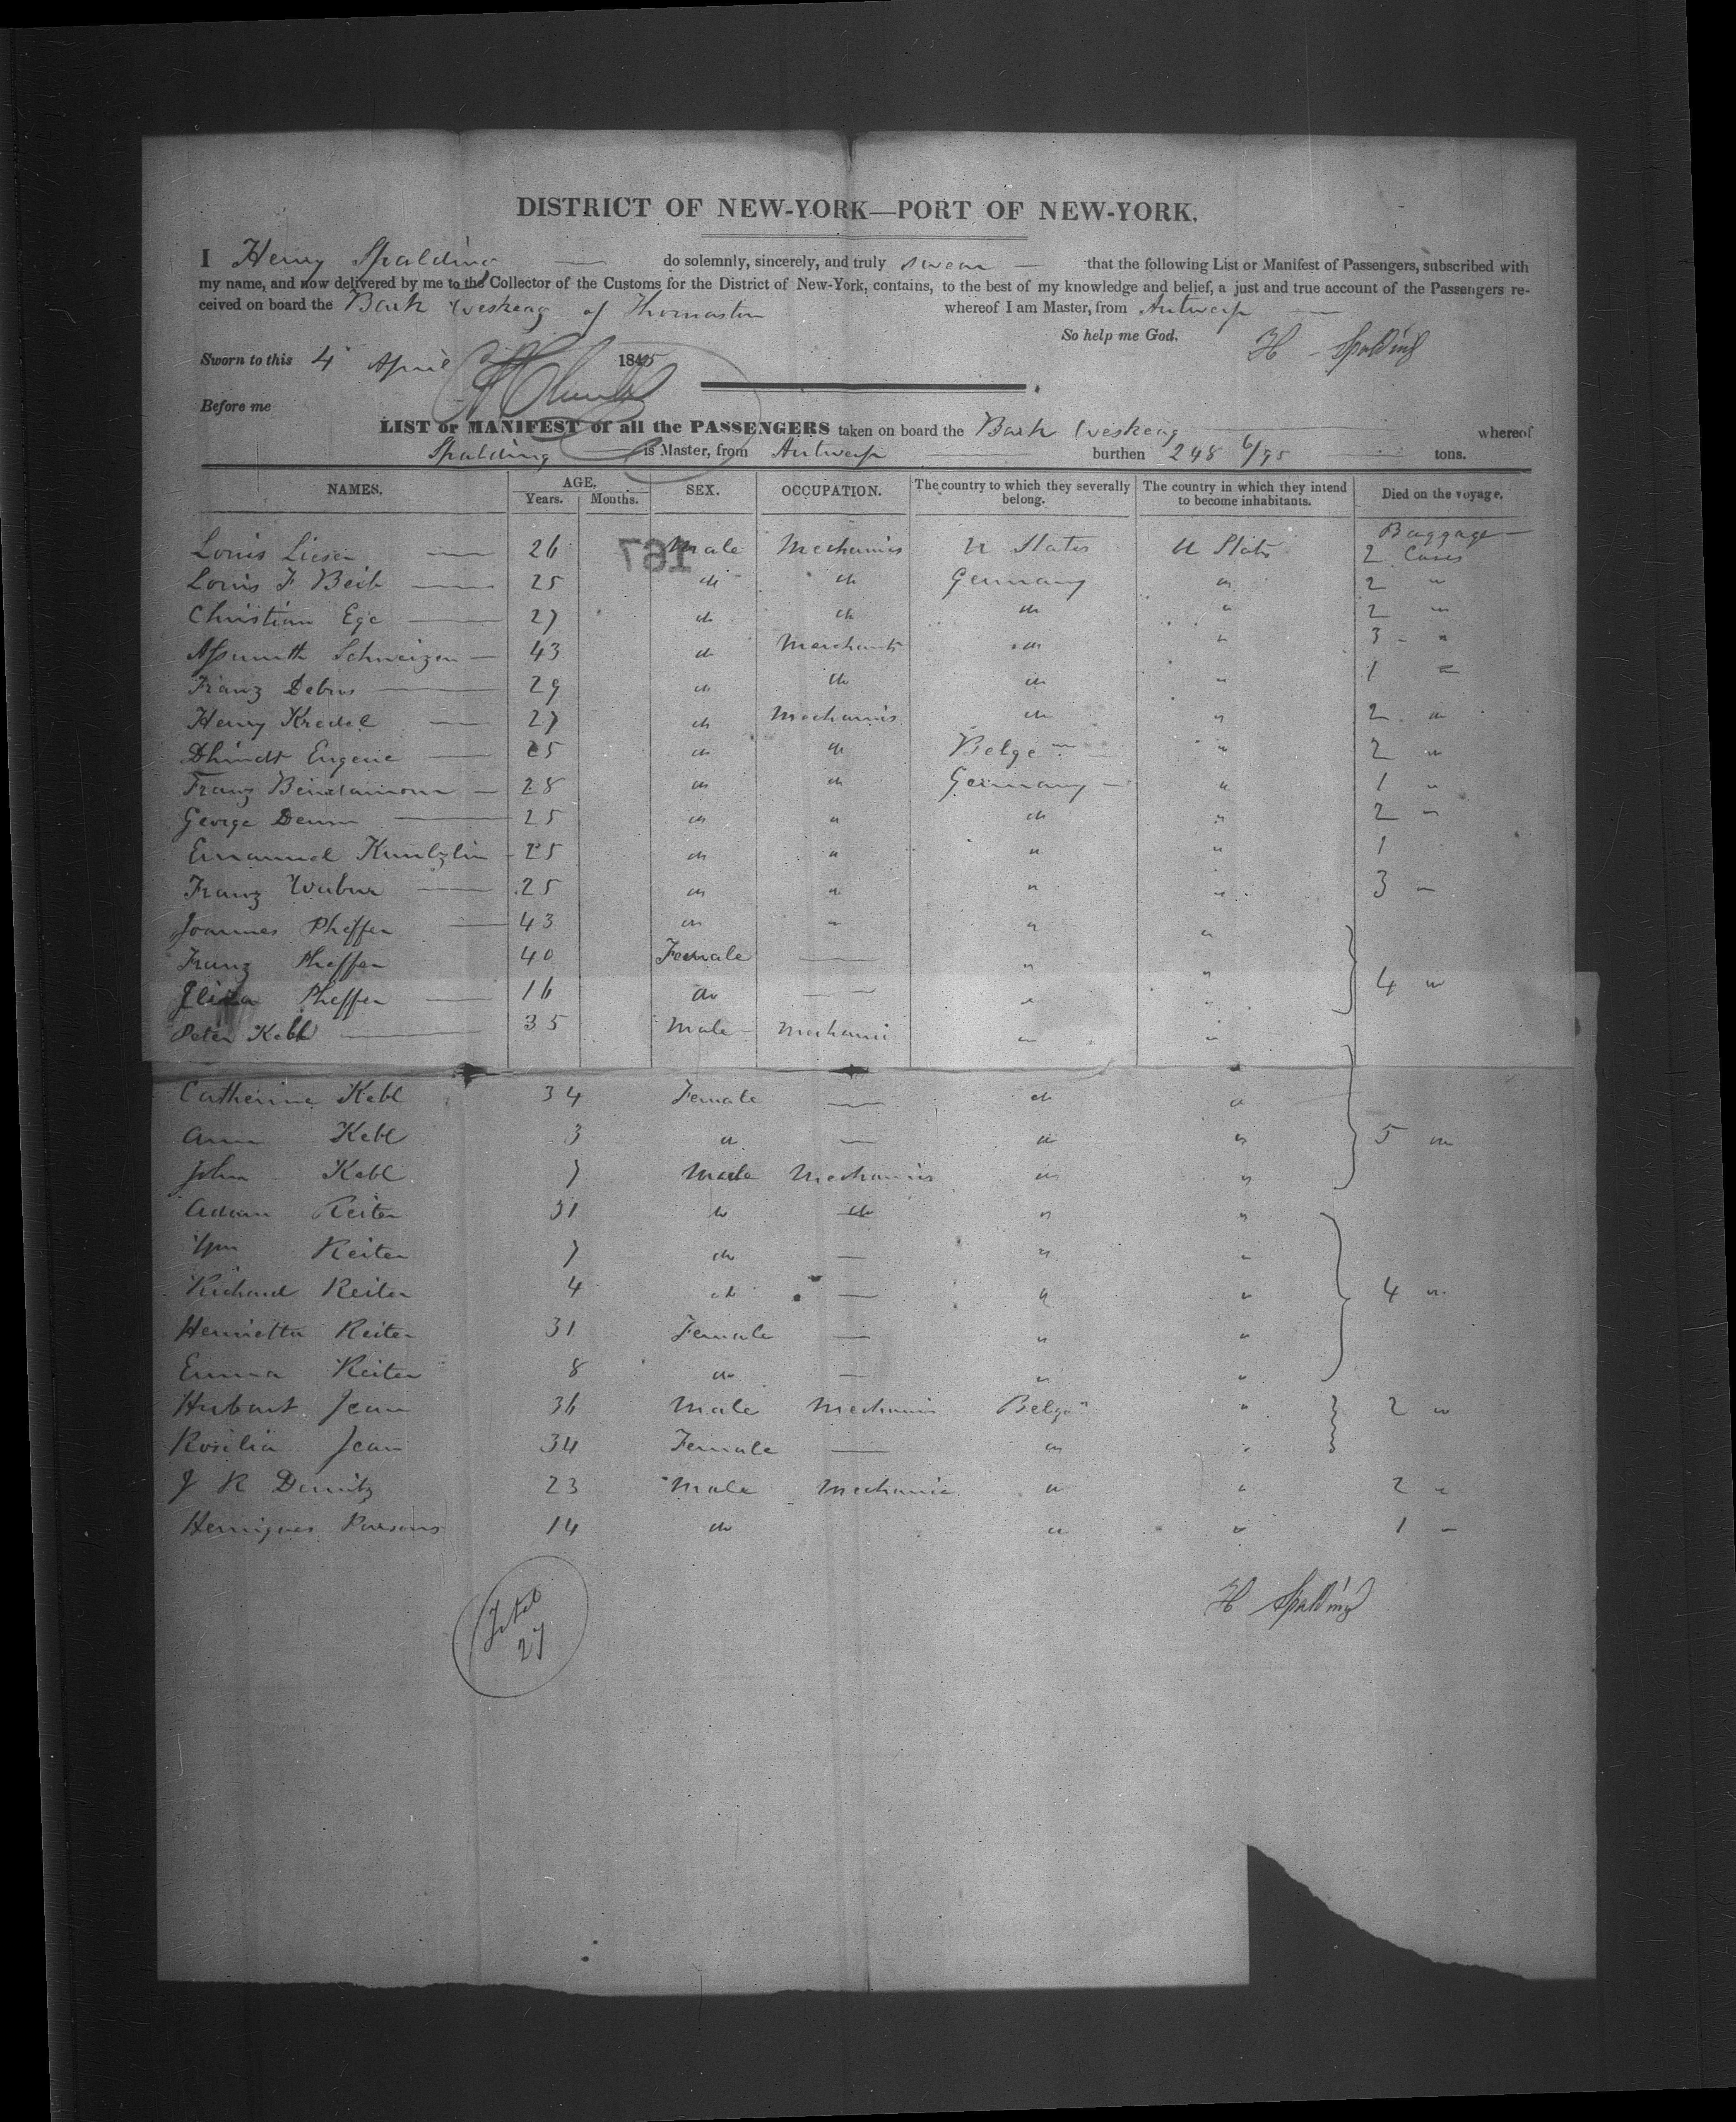 DISTRICT OF NEW-YORK—PORT OF NEW-YORK.
I Henry Spalding do solemnly, sincerely, and truly swear that the following List or Manifest of Passengers, subscribed with
my name, and now delivered by me to the Collector of the Customs for the District of New-York, contains, to the best of my knowledge and belief, a just and true account of the Passengers re-
ceived on board the Bark Weskeag of Thomaston whereof I am Master, from Antwerp
So help me God.
H Spalding
Sworn to this 4 April 1845
Before me
LIST or MANIFEST of all the PASSENGERS taken on board the Bark Weskeag whereof
Spalding is Master, from Antwerp burthen 248 6/95 tons.
NAMES. AGE, Years. Months. SEX. OCCUPATION. The country to which they severally belong. The country in which they intend to become inhabitants. Died on the voyage.
Baggage
167
Louis Liesen 26 Male Mechanics U States U States 2 Cases
Louis F Beib 25 do do Germany " 2 "
Christian Ege 27 do do do " 2 "
Schweizer 43 do Merchants do " 3 - "
Franz Debus 29 do do do " 1 "
Henry Kredel 27 do Mechanics do " 2 "
Dhindt Eugene 25 do do Belge " 2 "
Franz 28 do do Germany " 1 "
George Demm 25 do " do " 2 "
Emanuel Kuntzlin 25 do " " " 1
Franz Weber 25 do " " " 3 "
Joannes Pheffer 43 do " " "
Franz Pheffer 40 Female — " "
Eliza Pheffer 16 do — " " 4 "
Peter Kebl 35 Male Mechanic " "
Catherine Kebl 34 Female — do "
Ann Kebl 3 " — " " 5 "
John Kebl 7 Male Mechanics " "
Adam Reiter 31 do do " "
Wm Reiter 7 do — " "
Richard Reiter 4 do — " " 4 "
Henrietta Reiter 31 Female — " "
Emma Reiter 8 do — " "
Hubart Jean 36 Male Mechanic Belge " 2 "
Rosilia Jean 34 Female — " "
J R Dernitz 23 Male Mechanic " " 2 "
Herniques Parsons 14 do " " 1 "
Total
27
H Spalding